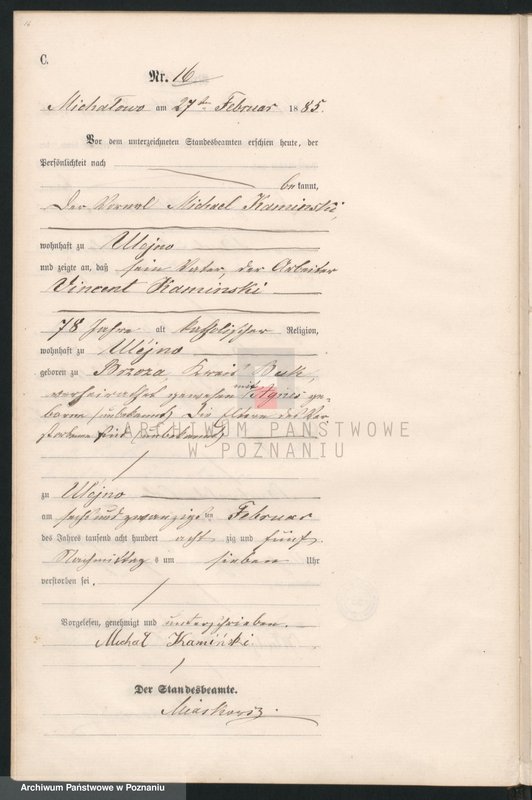 16
C.
Nr. 16
Michałowo am 27ten Februar 1885.
Vor dem unterzeichneten Standesbeamten erschien heute, der
Persönlichkeit nach
bekannt,
Der Michael Kaminski,
wohnhaft zu Ulejno
und zeigte an, daß sein Vater, der Arbeiter
Vincent Kaminski
78 Jahre alt katholischer Religion,
wohnhaft zu Ulejno
geboren zu Brzoza Kreis Buk,
verheirathet gewesen mit Agnes ge-
borne (unbekannt) Die Eltern des Ver-
storbenen sind (unbekannt)
ARCHIWUM PAŃSTWOWE
W POZNANIU
zu Ulejno
am sechs und zwanzigsten Februar
des Jahres tausend acht hundert acht zig und fünf
Nachmittags um sieben Uhr
verstorben sei.
Vorgelesen, genehmigt und unterschrieben.
Michał Kamiński
Der Standesbeamte.
Archiwum Państwowe w Poznaniu